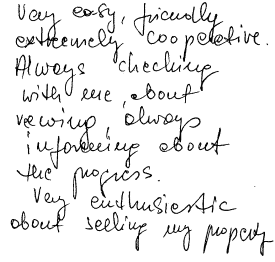 Very easy, friendly
extremely cooperative.
Always checking
with me, about
vewing, always
informing about
the progress.
Very enthusiestic
about selling my property